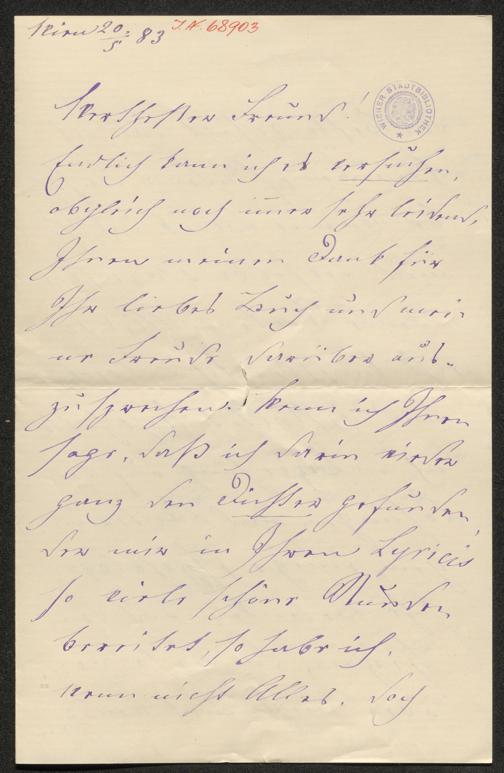 Wien 20/5. 83
I.N. 68903
WIENER STADTBIBLIOTHEK
Werthester Freund!
Endlich kann ich es versuchen,
obgleich noch immer sehr leidend,
Ihnen meinen Dank für
Ihr liebes Buch und mei-
ne Freude darüber aus-
zusprechen. Wenn ich Ihnen
sage, daß ich darin wieder
ganz den Dichter gefunden,
der mir in Ihren Lyricis
so viele schöne Stunden
bereitet, so habe ich,
wenn nicht Alles, doch